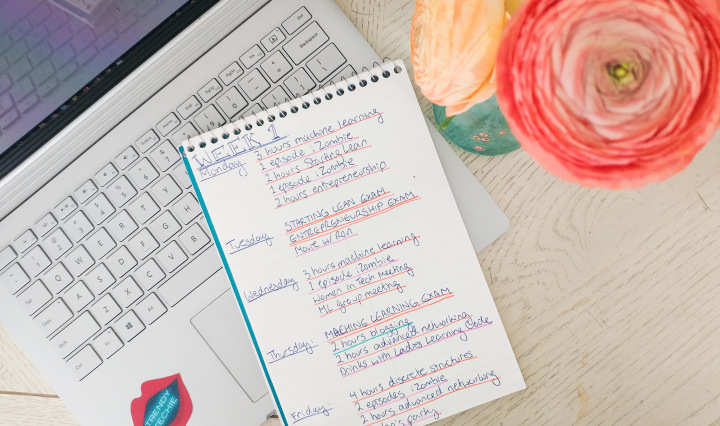 WEEK 1
Monday
3 hours machine learning
1 episode iZombie
2 hours Starting Lean
1 episode iZombie
2 hours entrepreneurship
Tuesday
STARTING LEAN EXAM
ENTREPRENEURSHIP EXAM
Movie w/ Ron
Wednesday
3 hours machine learning
1 episode iZombie
Women in Tech Meeting
ML group meeting
Thursday:
MACHING LEARNING EXAM
2 hours blogging
2 hours advanced networking
Drinks with Ladies Learning Code
Friday:
4 hours discrete structures
2 episodes iZombie
2 hours advanced networking
party
TRENDY
TECHIE
Backspace
Q W E R T Y
A S D F G H
Z X C V B